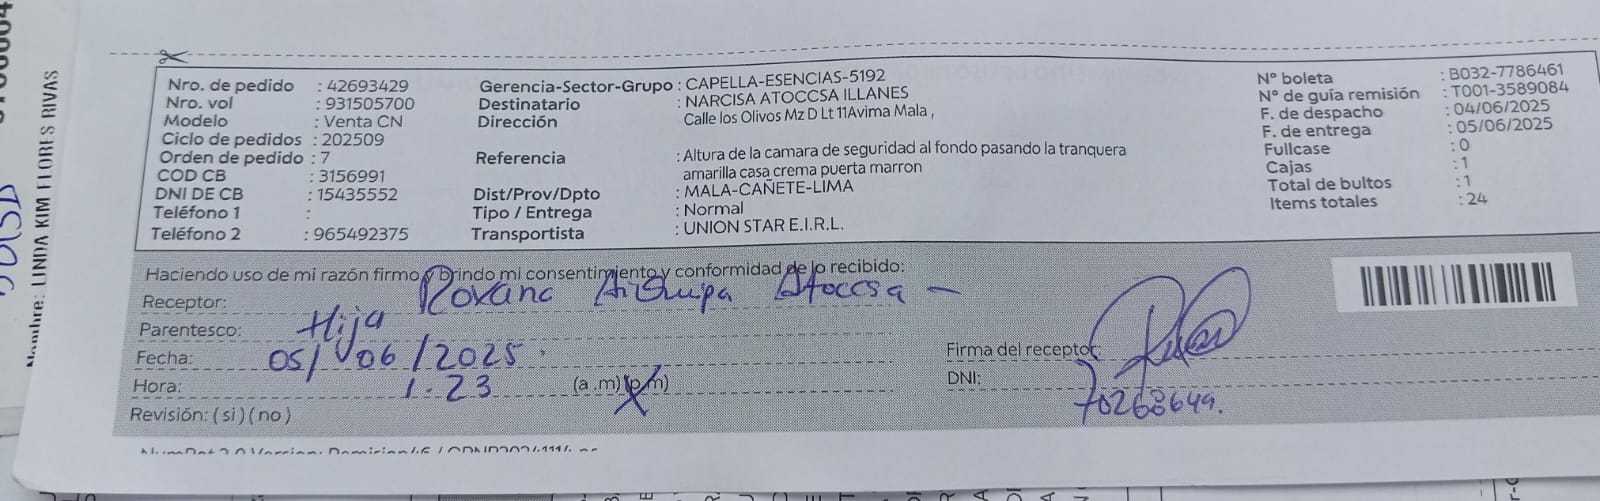 Nombre: LINDA KIM FLORES RIVAS
Nro. de pedido : 42693429
Nro. vol : 931505700
Modelo : Venta CN
Ciclo de pedidos : 202509
Orden de pedido : 7
COD CB : 3156991
DNI DE CB : 15435552
Teléfono 1 :
Teléfono 2 : 965492375
Gerencia-Sector-Grupo : CAPELLA-ESENCIAS-5192
Destinatario : NARCISA ATOCCSA ILLANES
Dirección Calle los Olivos Mz D Lt 11Avima Mala ,
Referencia : Altura de la camara de seguridad al fondo pasando la tranquera
amarilla casa crema puerta marron
Dist/Prov/Dpto : MALA-CAÑETE-LIMA
Tipo / Entrega : Normal
Transportista : UNION STAR E.I.R.L.
N° boleta : B032-7786461
N° de guía remisión : T001-3589084
F. de despacho : 04/06/2025
F. de entrega : 05/06/2025
Fullcase : 0
Cajas : 1
Total de bultos : 1
Items totales : 24
Haciendo uso de mi razón firmo y brindo mi consentimiento y conformidad de lo recibido:
Receptor: Roxana Atoccsa -
Parentesco: Hija
Fecha: 05/06/2025
Hora: 1.23 (a .m) (p.m)
Revisión: ( si ) ( no )
Firma del receptor:
DNI: 70268649.